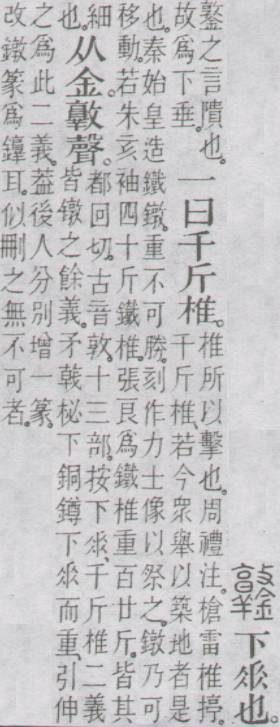 鐜下𠂹也。
鐜之言隤也。
故爲下垂。
一曰千斤椎。
椎所以擊也。周禮注。槍雷椎椁。
千斤椎、若今衆舉以築地者是
也。秦始皇造鐵鐓。重不可勝。刻作力士像以祭之。鐓乃可
移動。若朱亥袖四十斤鐵椎。張良爲鐵椎重百廿斤。皆其
細
也。
从金𢾭聲。
都回切。古音敦。十三部。按下𠂹、千斤椎二義
皆镦之餘義。矛戟柲下銅鐏下𠂹而重、引伸
之爲此二義。葢後人分別增一篆、
改鐓篆爲錞耳。似刪之無不可者。